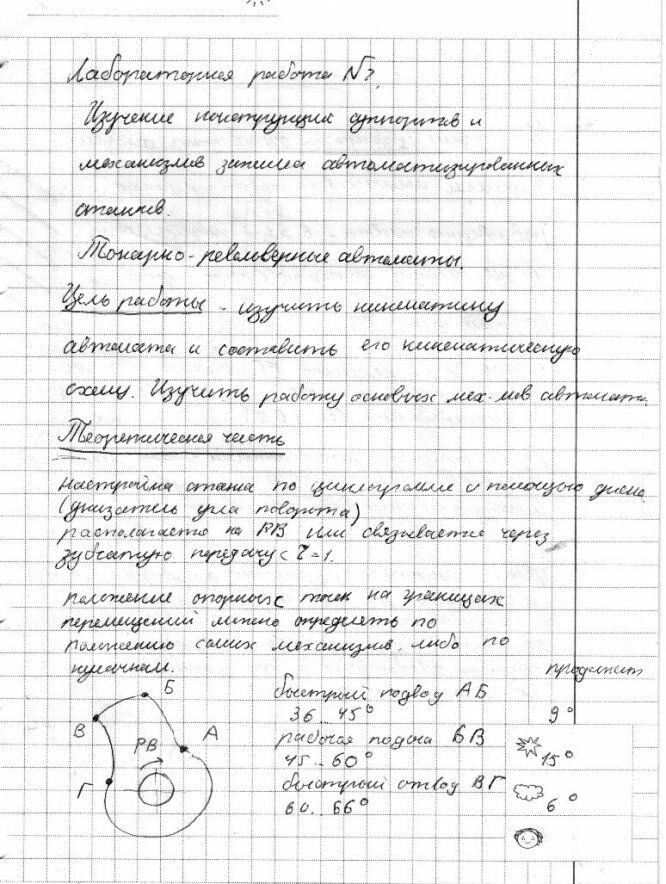 Лабораторная работа №7.
Изучение конструкций суппортов и
механизмов зажима автоматизированных
станков.
Токарно-револьверные автоматы.
Цель работы - изучить кинематику
автомата и составить его кинематическую
схему. Изучить работу основных мех-мов автомата.
Теоретическая часть
настройка станка по циклограмме с помощью диска
(указатель угла поворота)
располагается на РВ или связывается через
зубчатую передачу с i=1.
положение опорных точек на границах
перемещений можно определять по
положению самих механизмов, либо по
кулачкам.
Б
В
А
РВ
Г
быстрый подвод АБ
36...45°
9°
рабочая подача БВ
45...60°
15°
быстрый отвод ВГ
60...66°
6°